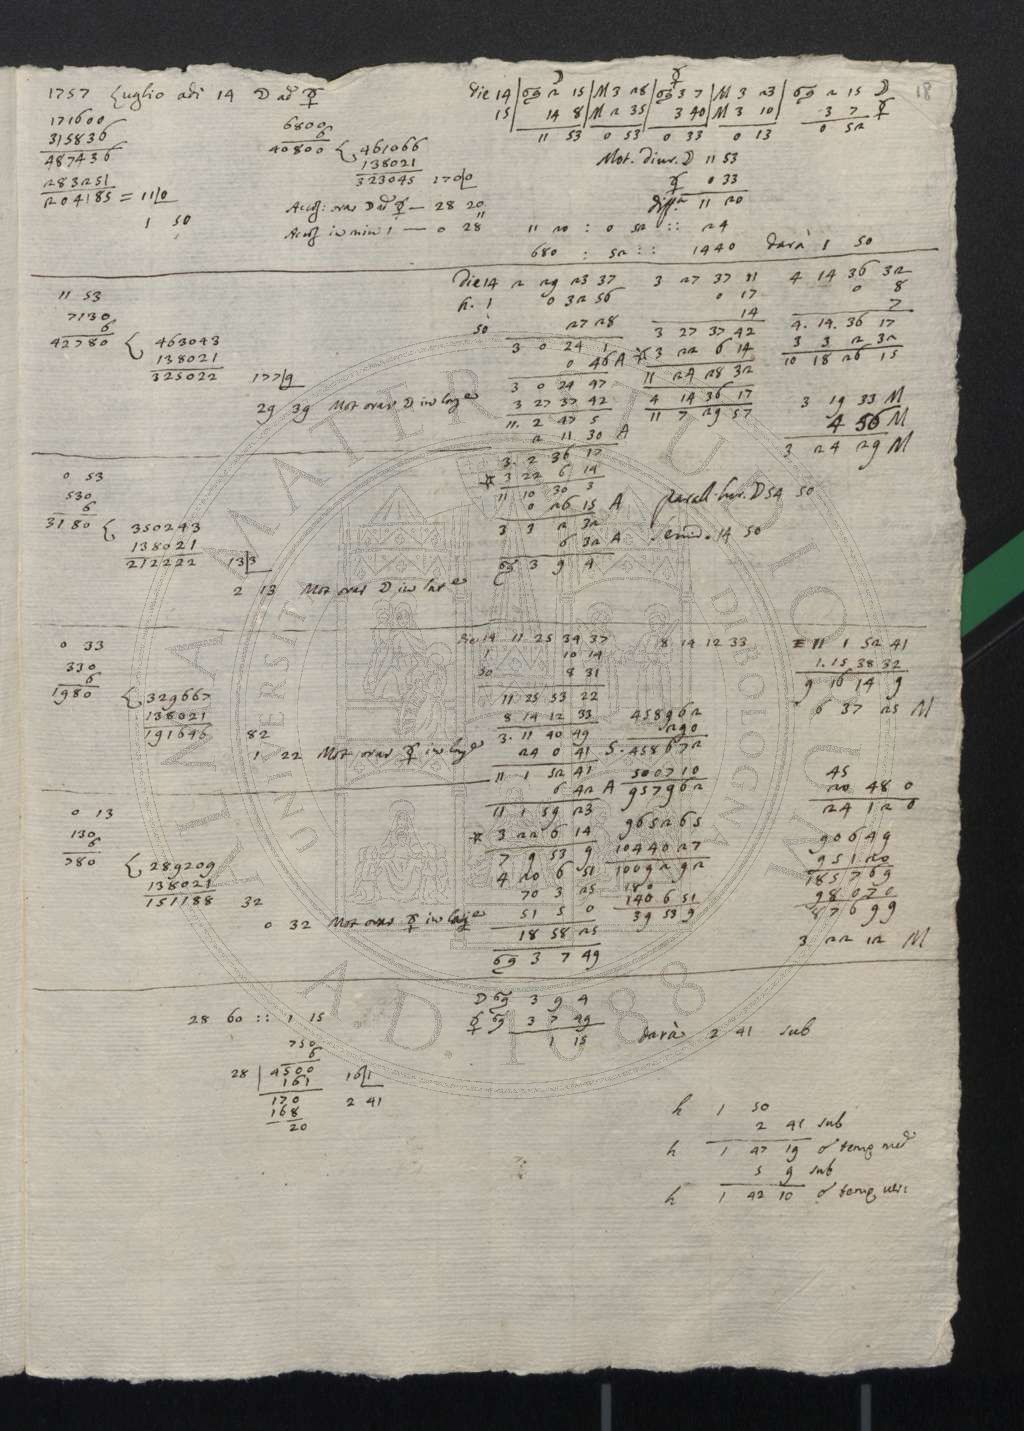 18
1757 Luglio adi 14 ☽ ad ☿
171600
315836
487436
283251
204185 = 11|0
1 50
6800
6
40800 { 461066
138021
323045 170|0
Accos: orar ☽ ad ☿ — 28 20
Accos in min 1 — 0 28
Die 14 | ♋ 2 15 | M 3 28 | ♋ 3 7 | M 3 23 | ♋ 2 15 ☽
15 | 14 8 | M 2 35 | 3 40 | M 3 10 | 3 7 ☿
11 53 0 53 0 33 0 13 0 52
Mot. diur. ☽ 11 53
☿ 0 33
diffa 11 20
11 20 : 0 52 :: 24
680 : 52 :: 1440 darà 1 50
11 53
7130
6
42780 { 463043
138021
325022 177|9
29 39 Mot orar ☽ in longe
Die 14 2 29 23 37 3 27 37 11 4 14 36 32
h. 1 0 32 56 0 17 0 8
50 27 28 14 7
3 0 24 1 3 27 37 42 4. 14. 36 17
0 46 A ☆ 3 22 6 14 3 3 2 32
3 0 24 47 11 24 28 32 10 18 26 15
3 27 37 42 4 14 36 17
11. 2 47 5 11 7 29 57
3 19 33 M
4 56 M
3 24 29 M
2 11 30 A
3. 2 36 17
☆ 3 22 6 14
11 10 30 3
0 26 15 A
3 3 2 32
6 32 A
♋ 3 9 4
parall. hor. ☽ 54 50
semid. 14 50
0 53
530
6
3180 { 350243
138021
212222 13|3
2 13 Mot orar ☽ in late
0 33
330
6
1980 { 329667
138021
191646 82
1 22 Mot orar ☿ in longe
Die 14 11 25 34 37 8 14 12 33 11 1 52 41
1 10 14 1. 15 38 32
50 8 31 9 16 14 9
11 25 53 22
8 14 12 33 458962 6 37 25 M
3. 11 40 49 290
24 0 41 S. 458672
11 1 52 41 500710 45
6 42 A 957962 20 48 0
11 1 59 23 24 1 20
☆ 3 22 6 14 965265
7 9 53 9 1044027 90649
4 20 6 51 1009292 95120
70 3 25 180 185769
51 5 0 140 6 51 98070
18 58 25 39 53 9 87699
♋ 3 7 49 3 22 12 M
0 13
130
6
780 { 289209
138021
151188 32
0 32 Mot orar ☿ in longe
☽ ♋ 3 9 4
☿ ♋ 3 7 49
1 15 darà 2 41 sub
28 60 :: 1 15
750
6
28 | 4500 16|1
161
170 2 41
168
20
h 1 50
2 41 sub
h 1 47 19 ☌ temp med
5 9 sub
h 1 42 10 ☌ temp
ALMA MATER STUDIORUM
UNIVERSITÀ DI BOLOGNA
A.D. 1088